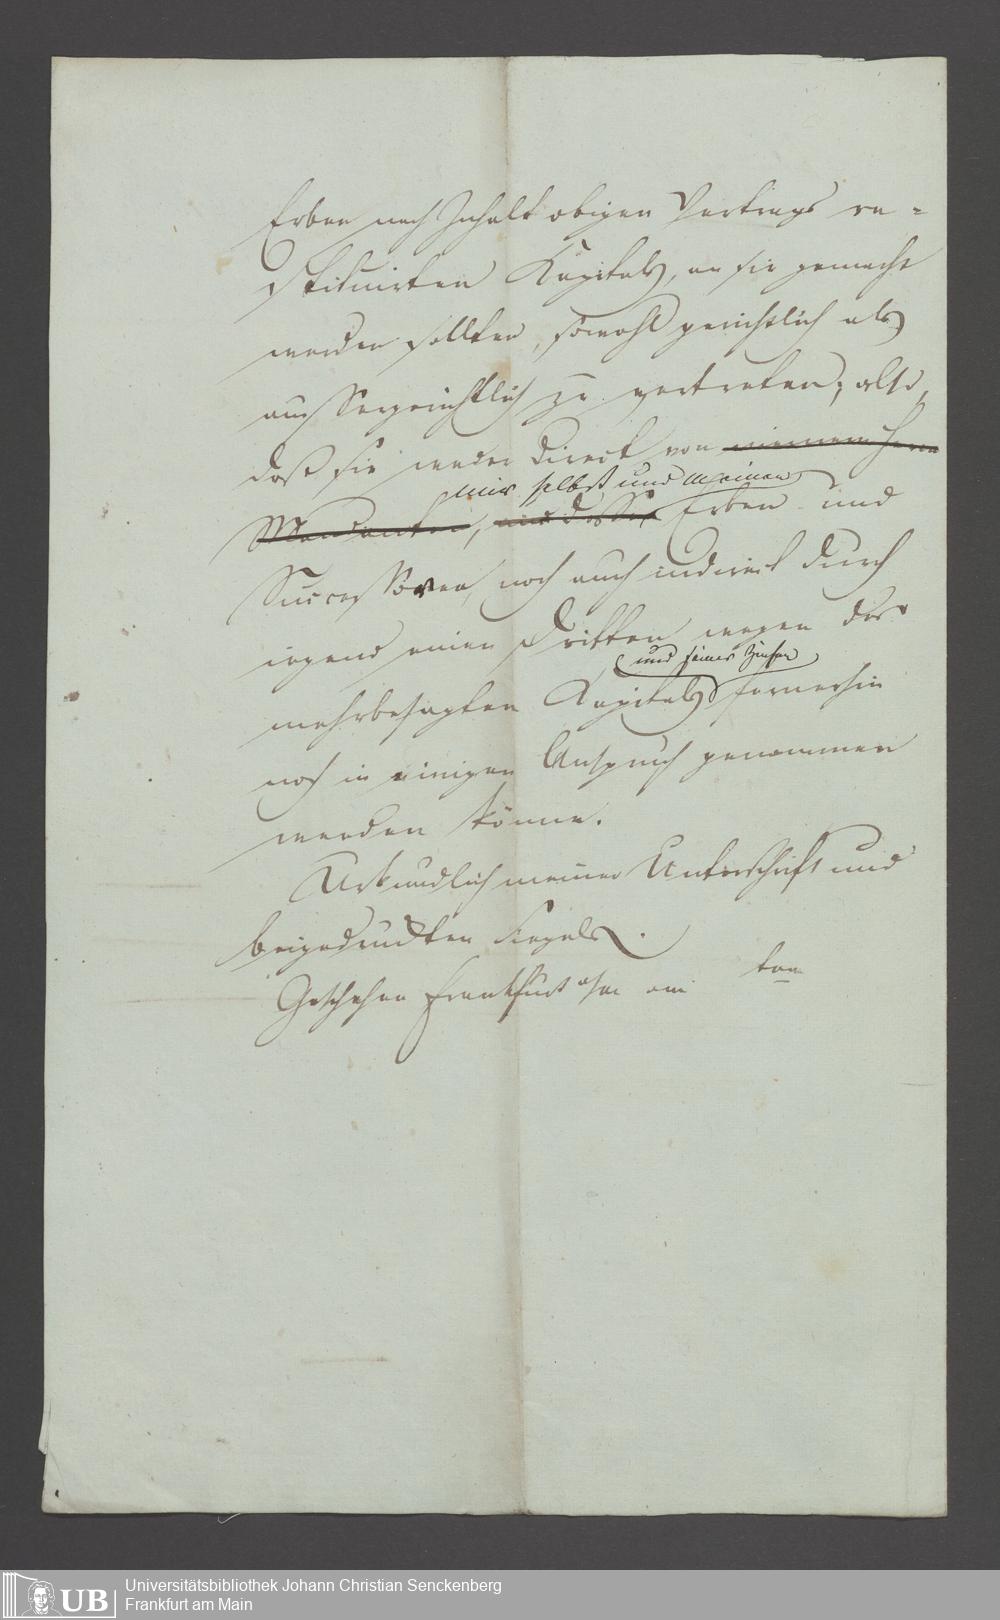 Erben nach Inhalt obigen Vertrags re-
stituirten Kapitals, an sie gemacht
werden sollten, sowohl gerichtlich als
aussergerichtlich zu vertreten; also,
daß sie weder direct von meinem Herrn
mir selbst und meinen
Mandanten, und dessen Erben und
Successoren, noch auch indirect durch
irgend einen Dritten wegen des
und seiner Zinsen
mehrbesagten Kapitals fernerhin
noch in einigen Anspruch genommen
werden könne.
Urkundlich meiner Unterschrift und
beigedruckten Siegels.
Geschehen Frankfurt am ten
Universitätsbibliothek Johann Christian Senckenberg
Frankfurt am Main
UB